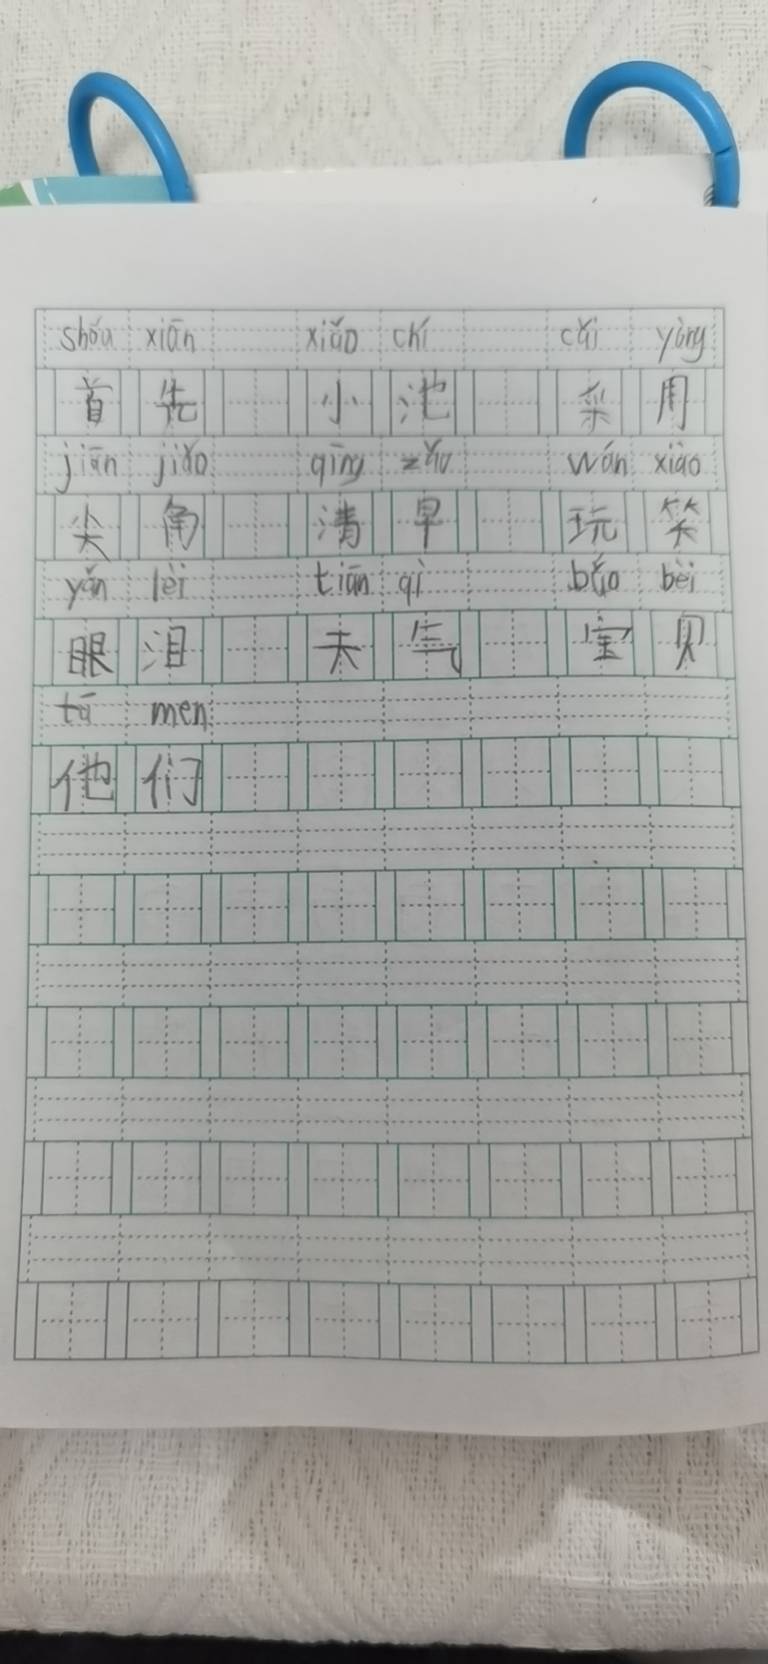 shǒu xiān xiǎo chí cǎi yòng
首 先 小 池 采 用
jiān jiǎo qīng zǎo wán xiào
尖 角 清 早 玩 笑
yǎn lèi tiān qì bǎo bèi
眼 泪 天 气 宝 贝
tā men
他 们